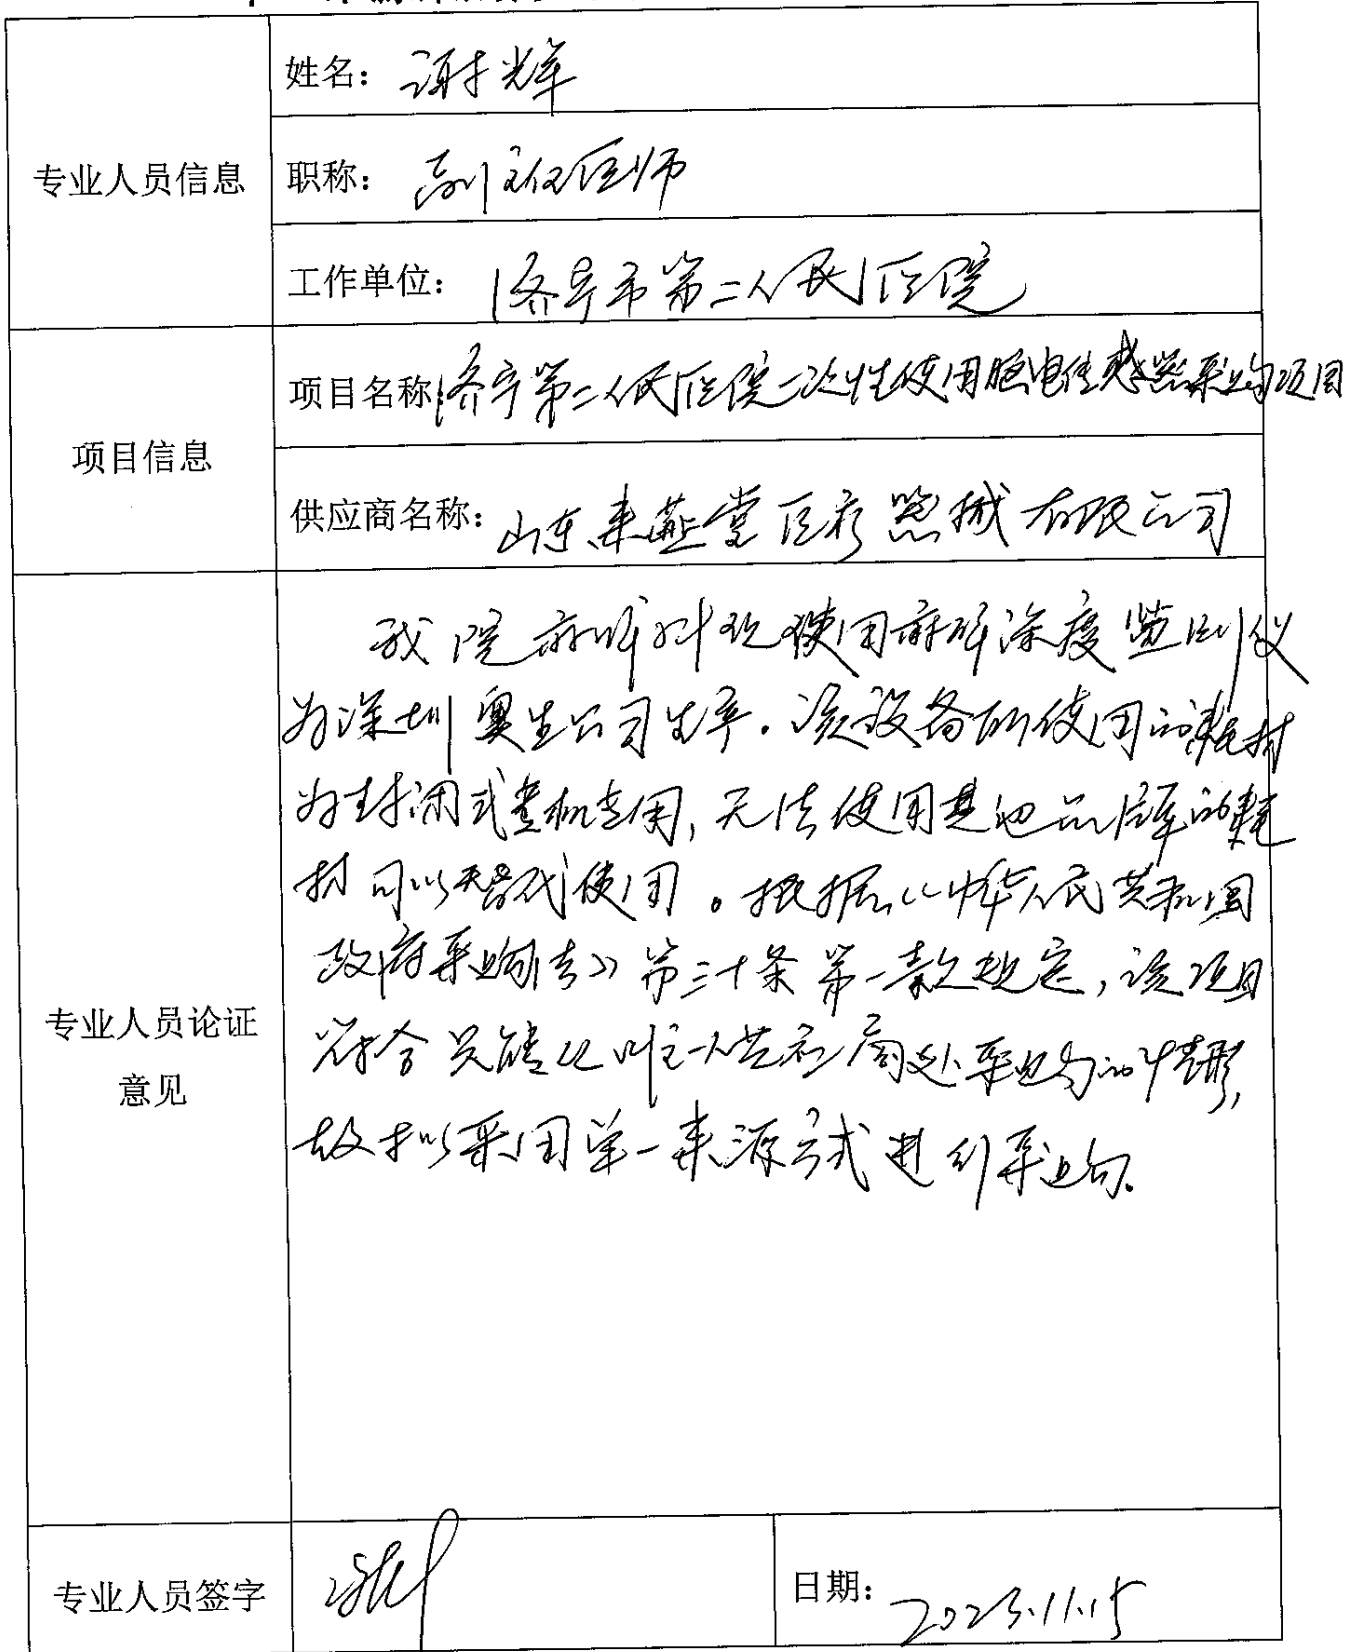 姓名：谢辉
专业人员信息
职称：副主任医师
工作单位：济宁市第二人民医院
项目名称：济宁第二人民医院一次性使用脑电传感器采购项目
项目信息
供应商名称：山东来燕堂医疗器械有限公司
我院麻醉科现使用麻醉深度监测仪
为深圳奥生公司生产。该设备所使用的耗材
为封闭式专机专用，无法使用其他品牌的耗
材可以替代使用。根据《中华人民共和国
政府采购法》第三十条第一款规定，该项目
符合只能从唯一供应商处采购的情形，
故拟采用单一来源方式进行采购。
专业人员论证
意见
专业人员签字
日期：2023.11.15